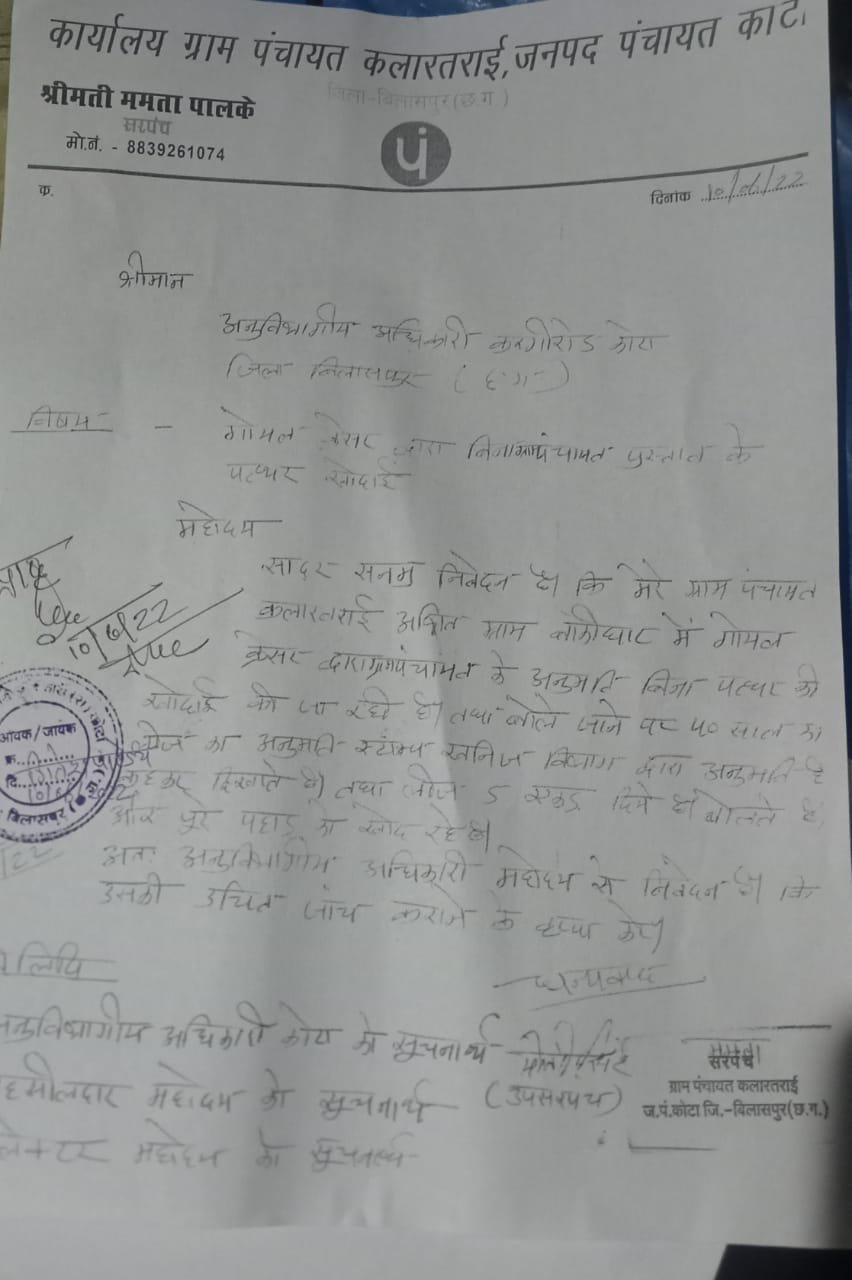 कार्यालय ग्राम पंचायत कलारतराई, जनपद पंचायत कोटा
जिला-बिलासपुर(छ.ग.)
श्रीमती ममता पालके
सरपंच
मो.नं. - 8839261074
पं
क्र.
दिनांक 10/06/22
श्रीमान
अनुविभागीय अधिकारी करगीरोड कोटा
जिला बिलासपुर (छ.ग.)
विषय - गोयल क्रेसर द्वारा बिना ग्राम पंचायत प्रस्ताव के
पत्थर खोदाई
महोदय
सादर सनम्र निवेदन है। कि मेरे ग्राम पंचायत
कलारतराई आश्रित ग्राम में गोयल
क्रेसर द्वारा ग्राम पंचायत के अनुमति बिना पत्थर की
खोदाई की जा रही है। तथा बोले जाने पर 50 साल का
लीज का अनुमति स्टाम्प खनिज विभाग द्वारा अनुमति है
कहकर दिखाते है। तथा लीज 5 एकड़ दिये है। बोलते है,
और पूरे पहाड़ को खोद रहे है।
अतः अनुविभागीय अधिकारी महोदय से निवेदन है। कि
उसकी उचित जांच कराने के कृपा करे।
धन्यवाद
10/6/22
आवक/जावक
क्र.
दि.
बिलासपुर
लिपि
अनुविभागीय अधिकारी कोटा को सूचनार्थ
तहसीलदार महोदय को सूचनार्थ
कलेक्टर महोदय को सूचनार्थ
(उपसरपंच)
सरपंच
ग्राम पंचायत कलारतराई
ज.पं.कोटा जि.-बिलासपुर(छ.ग.)